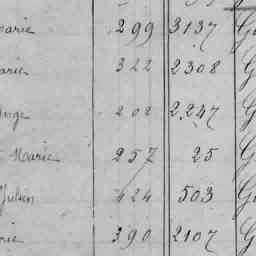 Marie 299 3137 G
Marie 322 2308 G
Ange 202 2247 G
Marie 257 25 G
Julien 424 503 G
rie 390 2107 G